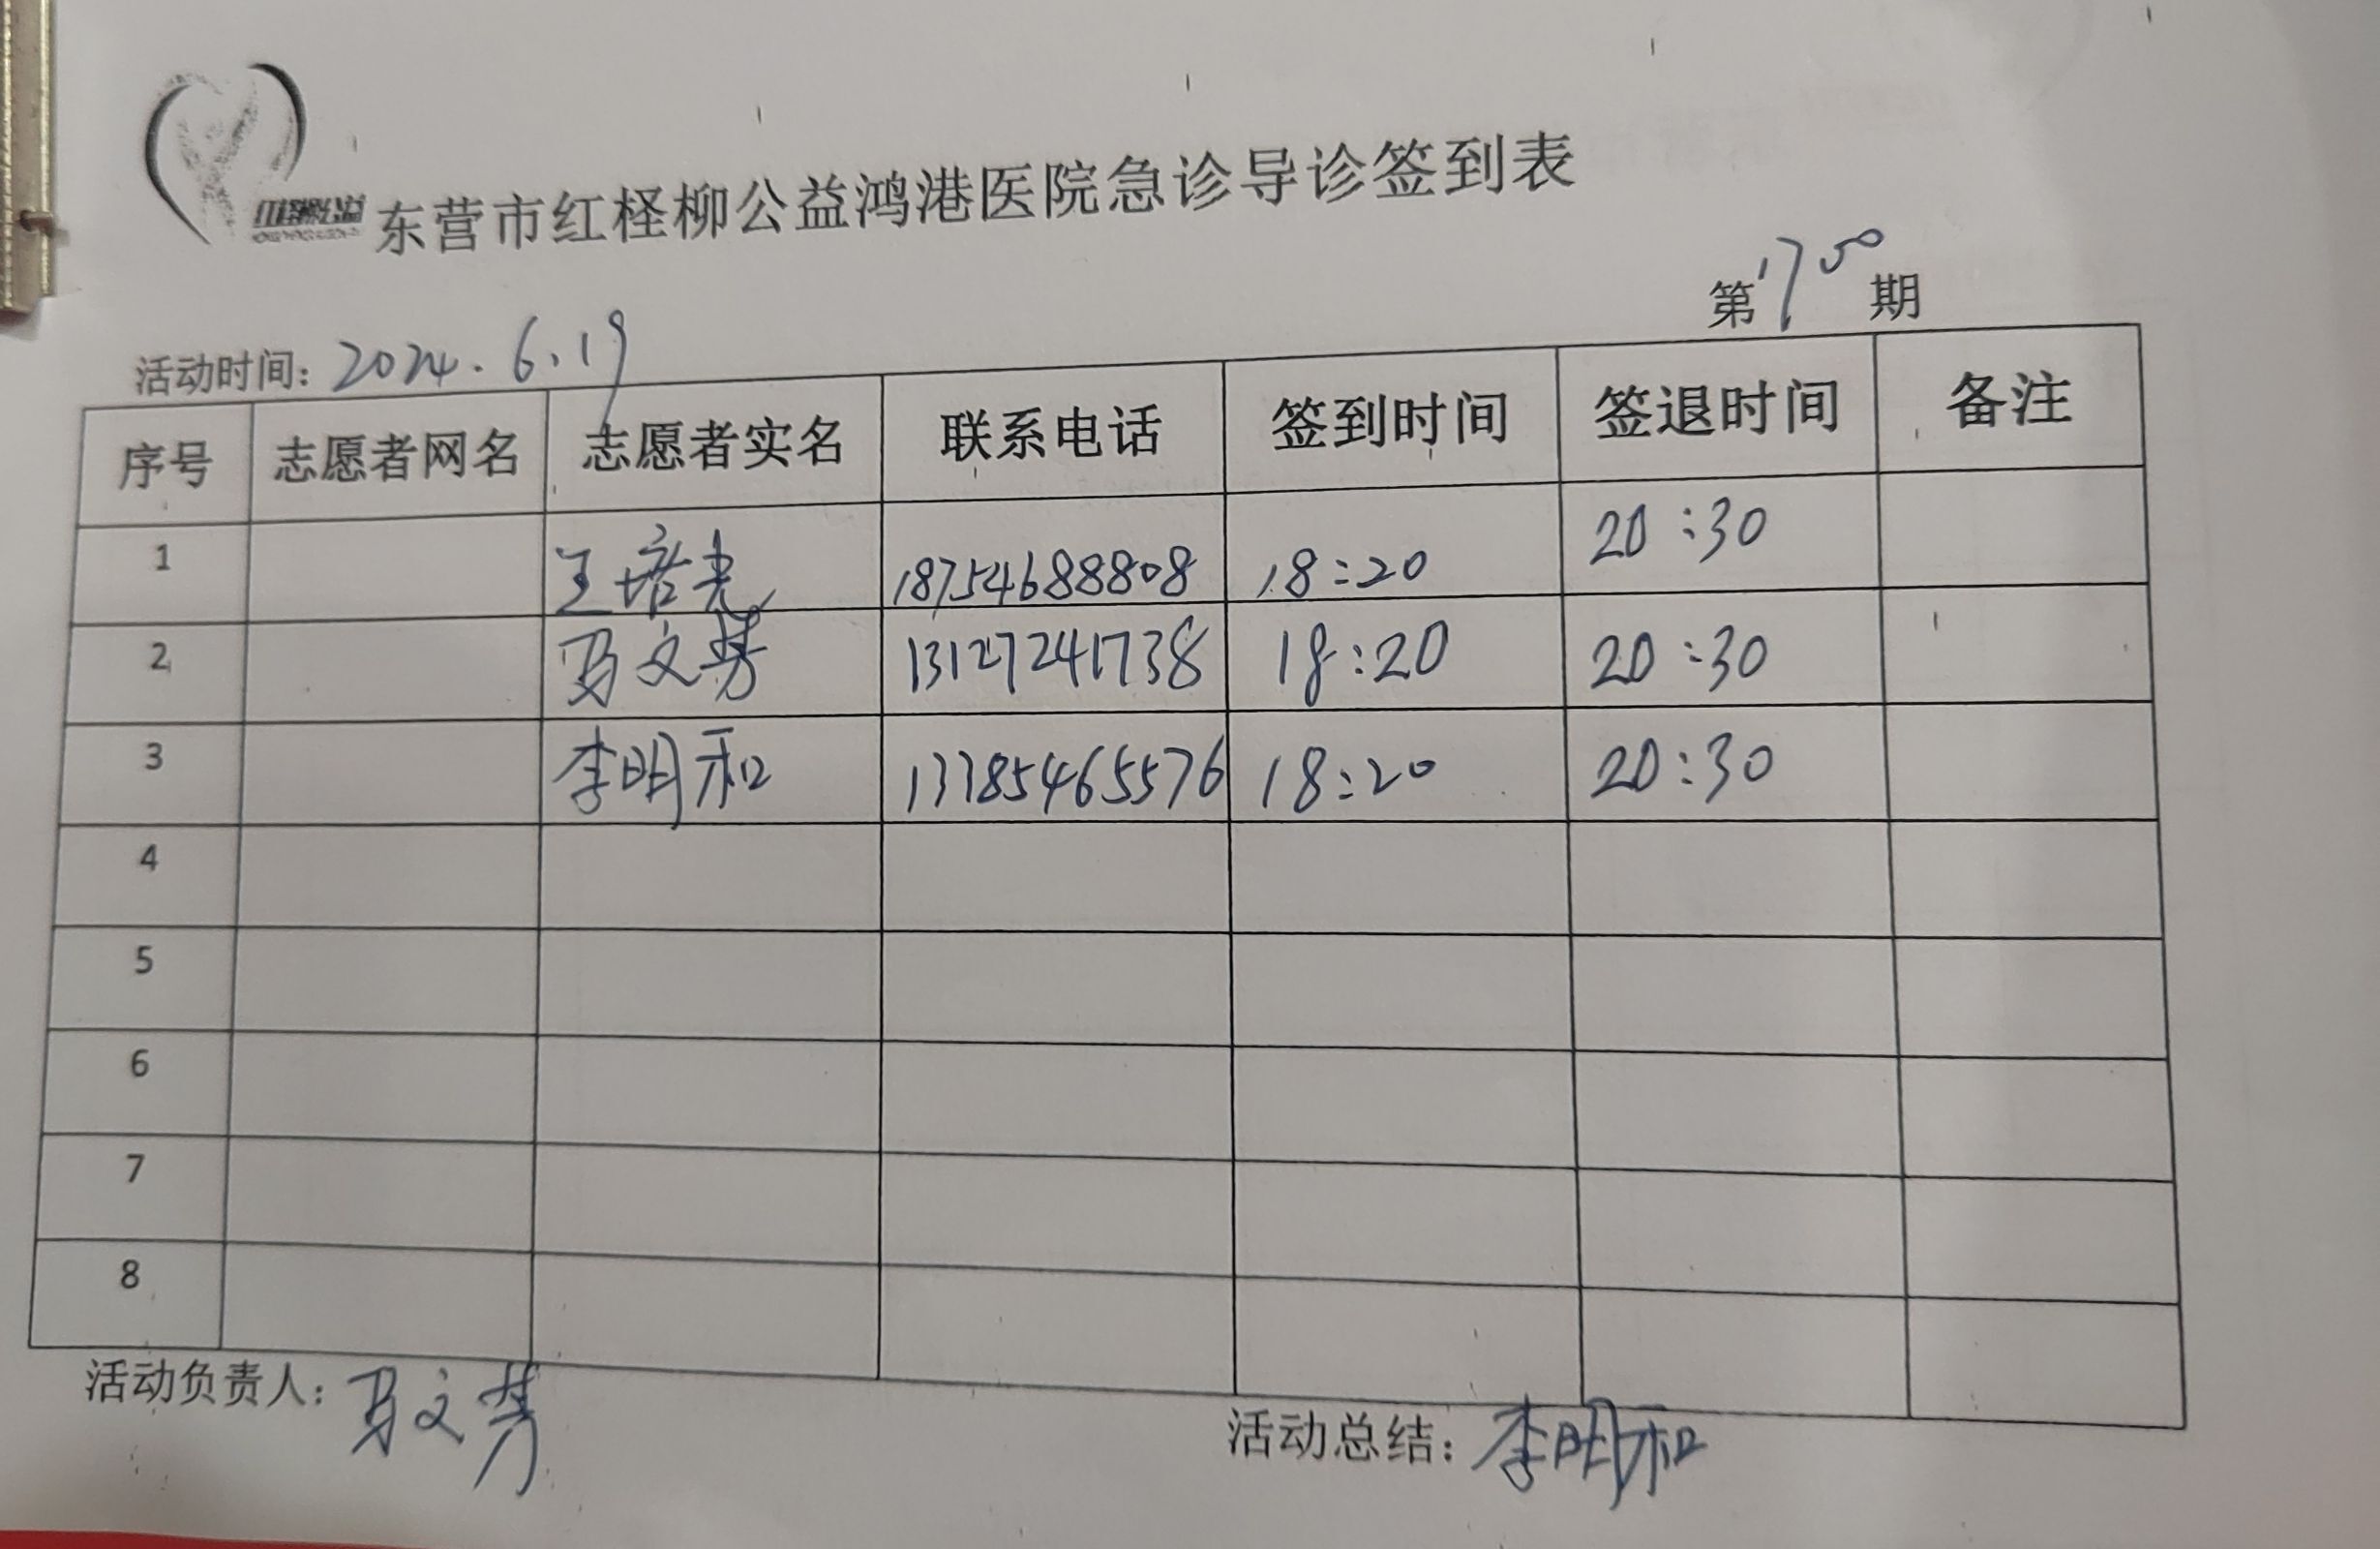 东营市红柽柳公益鸿港医院急诊导诊签到表
第1750期
活动时间：2024.6.19
序号 志愿者网名 志愿者实名 联系电话 签到时间 签退时间 备注
1 王培亮 18754688808 18:20 20:30
2 马文芳 13127241738 18:20 20:30
3 李明和 13385465576 18:20 20:30
4
5
6
7
8
活动负责人：马文芳
活动总结：李明和